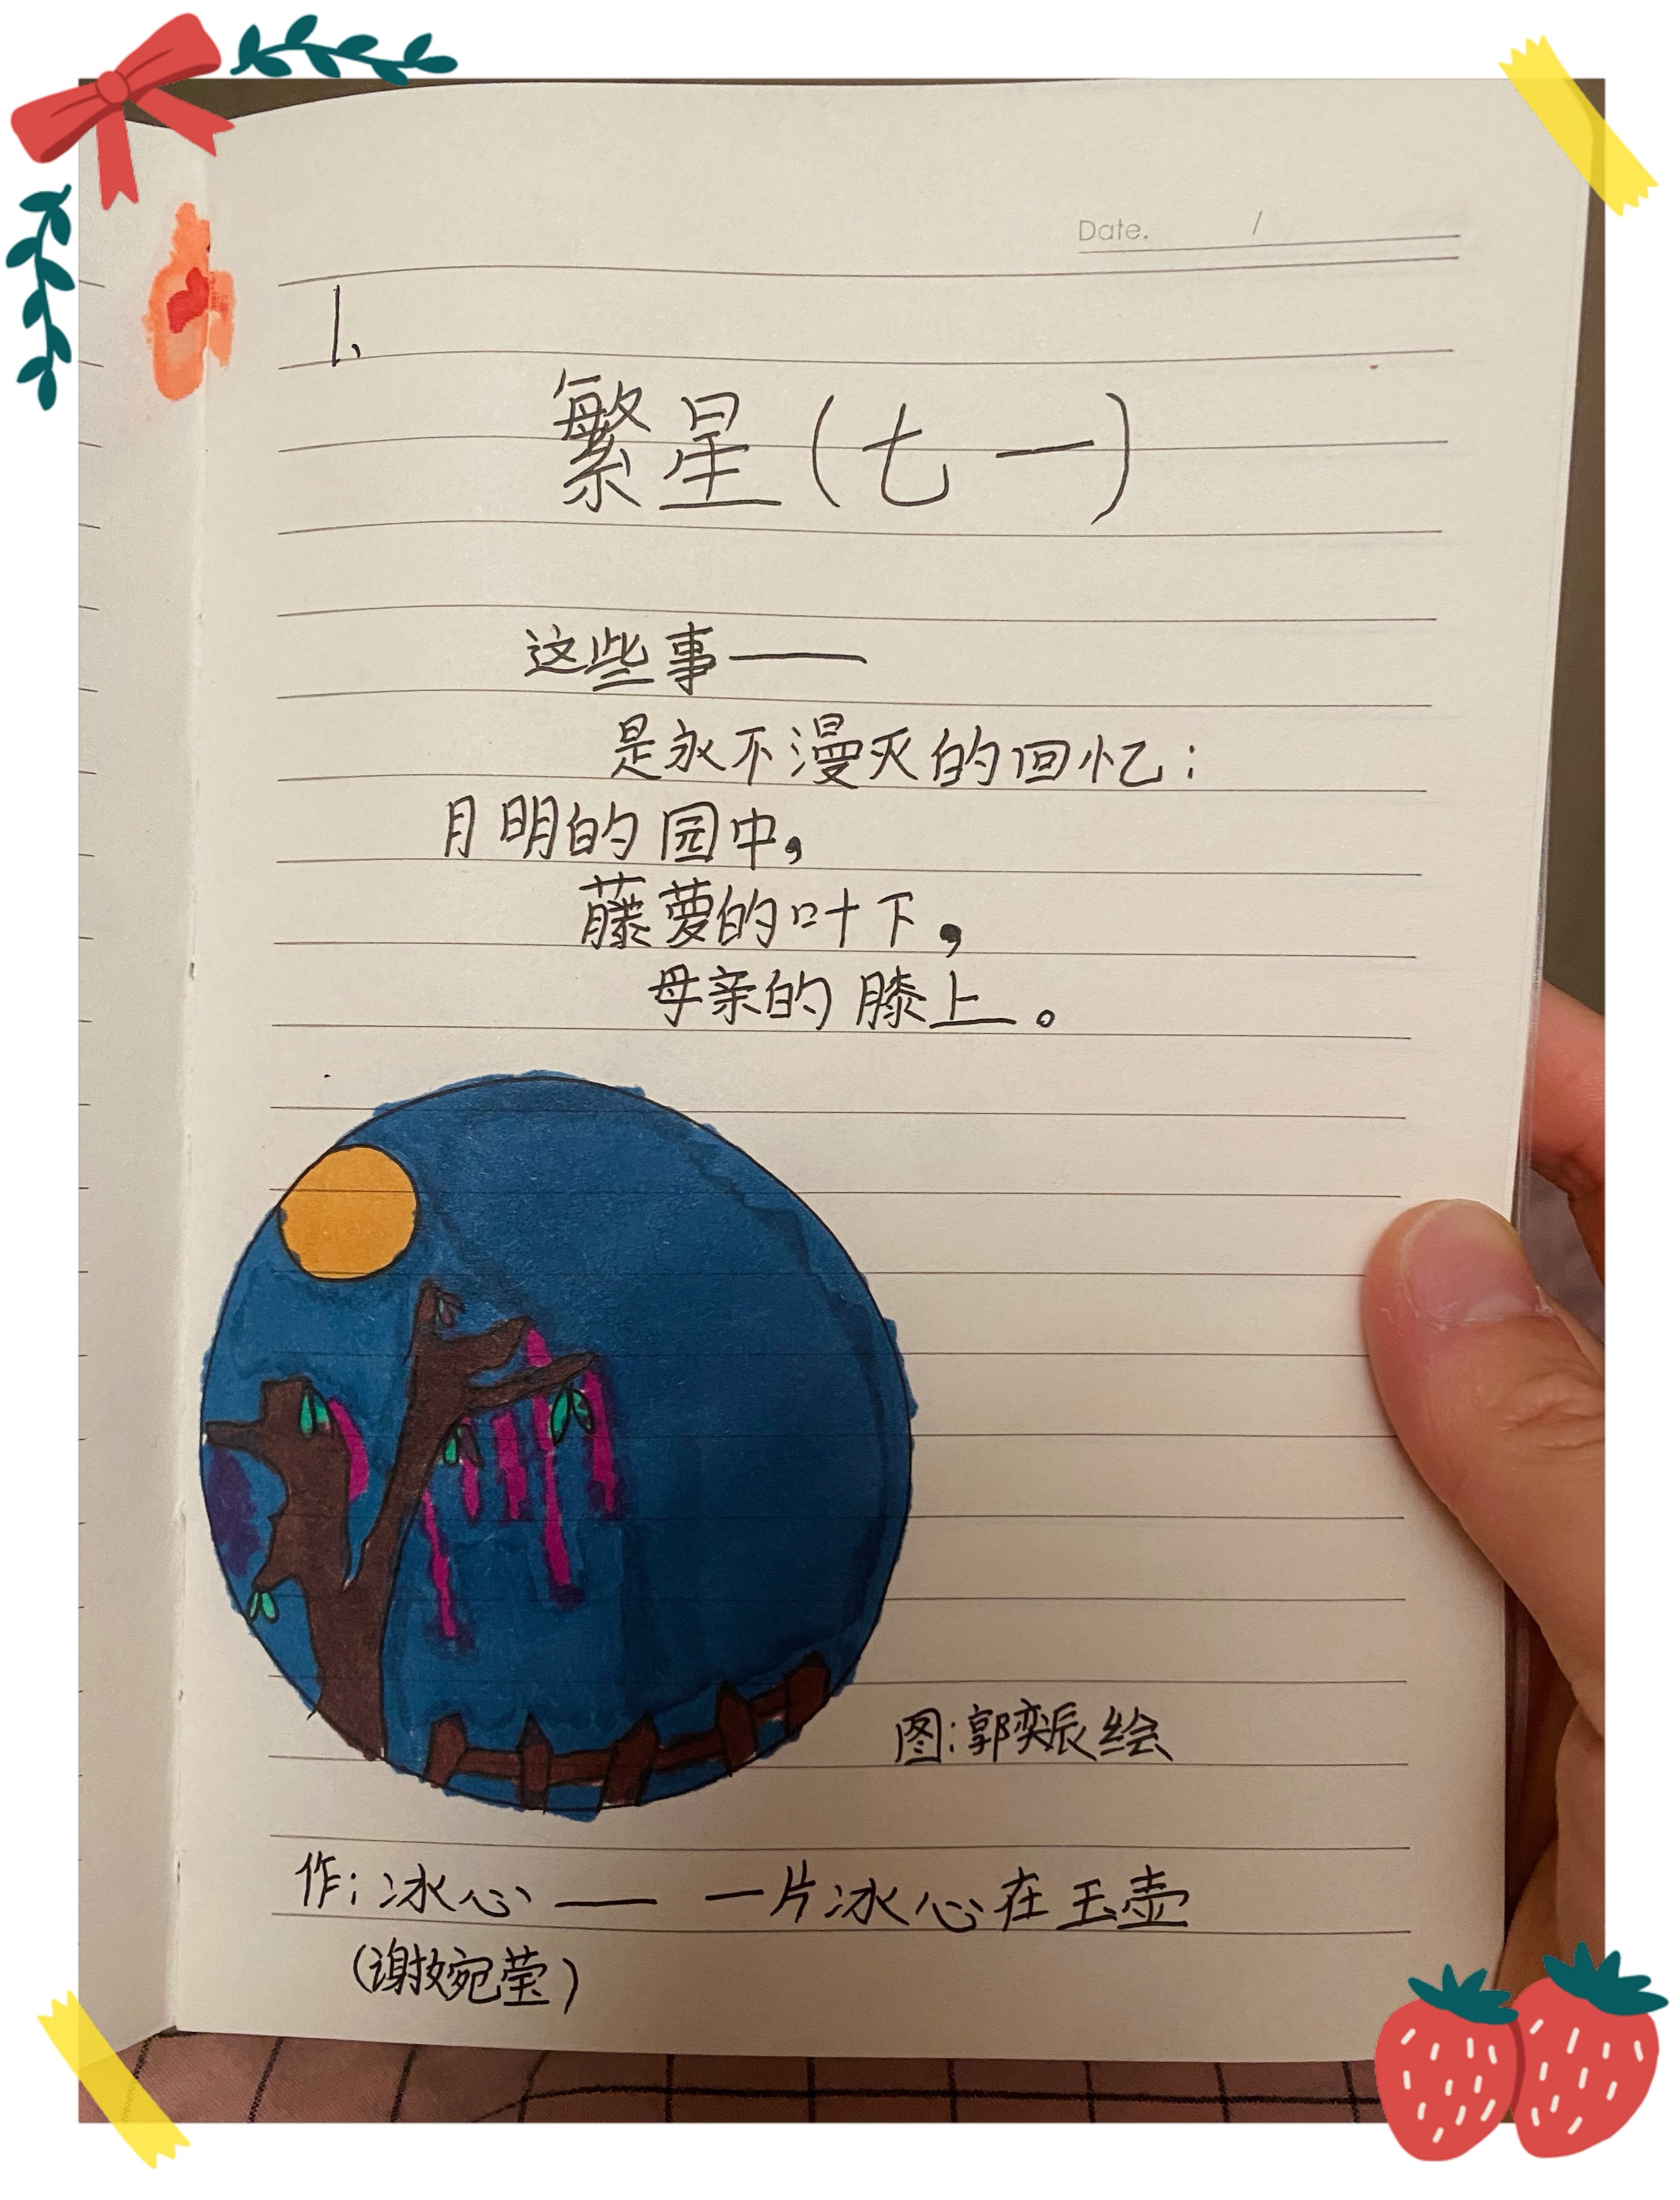 Date. /
1、
繁星(七一)
这些事——
是永不漫灭的回忆:
月明的园中,
藤萝的叶下,
母亲的膝上。
图:郭奕辰绘
作:冰心—— 一片冰心在玉壶
(谢婉莹)